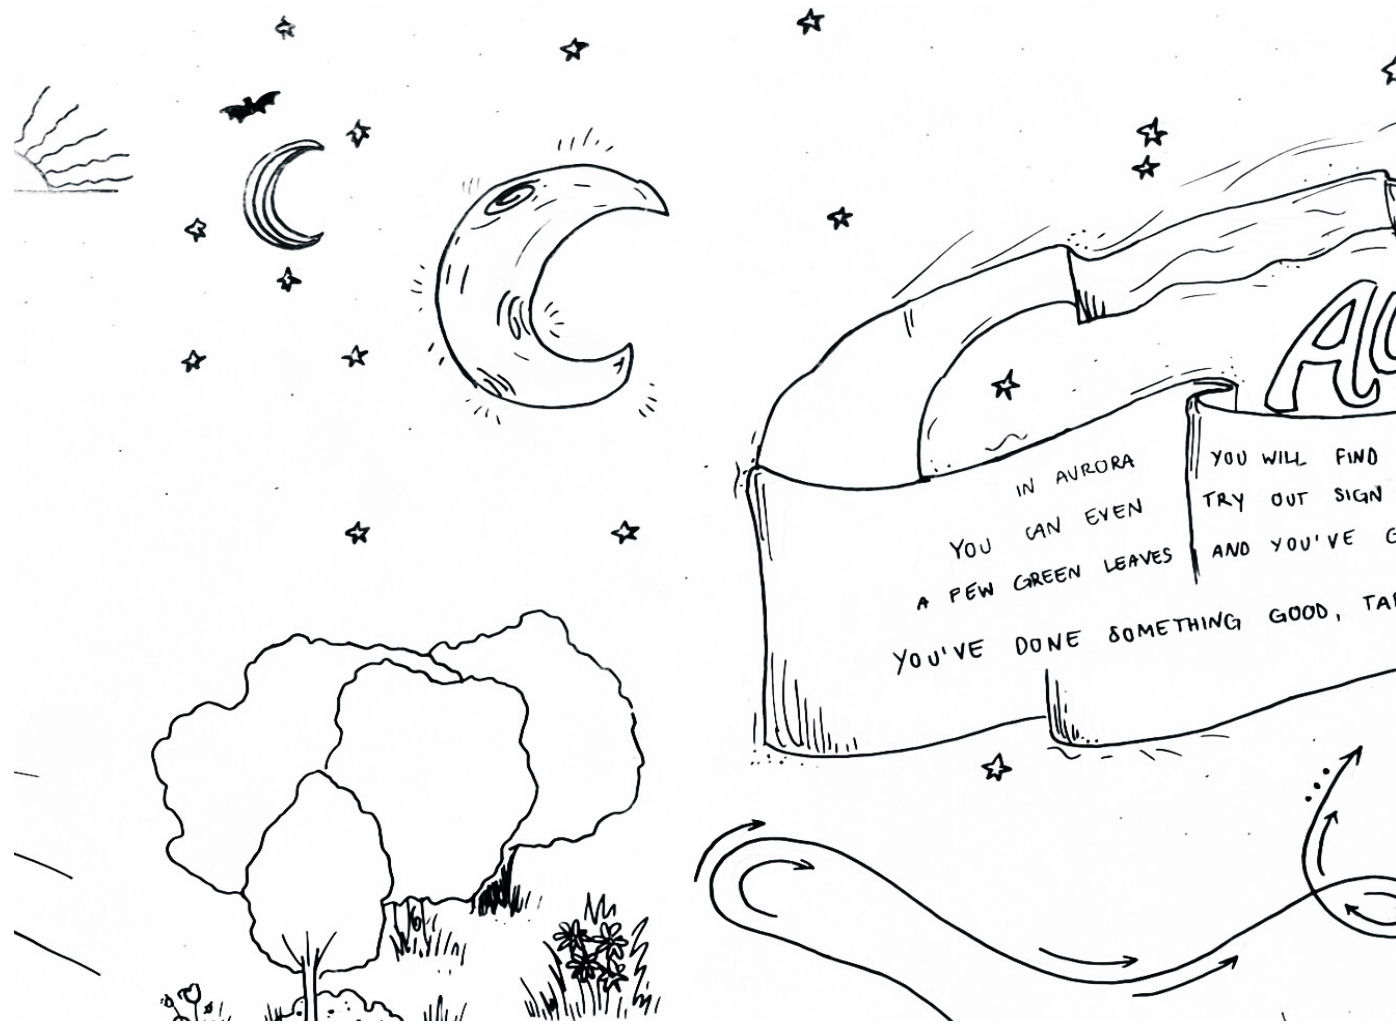 AU
IN AURORA
YOU CAN EVEN
A FEW GREEN LEAVES
YOU WILL FIND
TRY OUT SIGN
AND YOU'VE G
YOU'VE DONE SOMETHING GOOD, TA